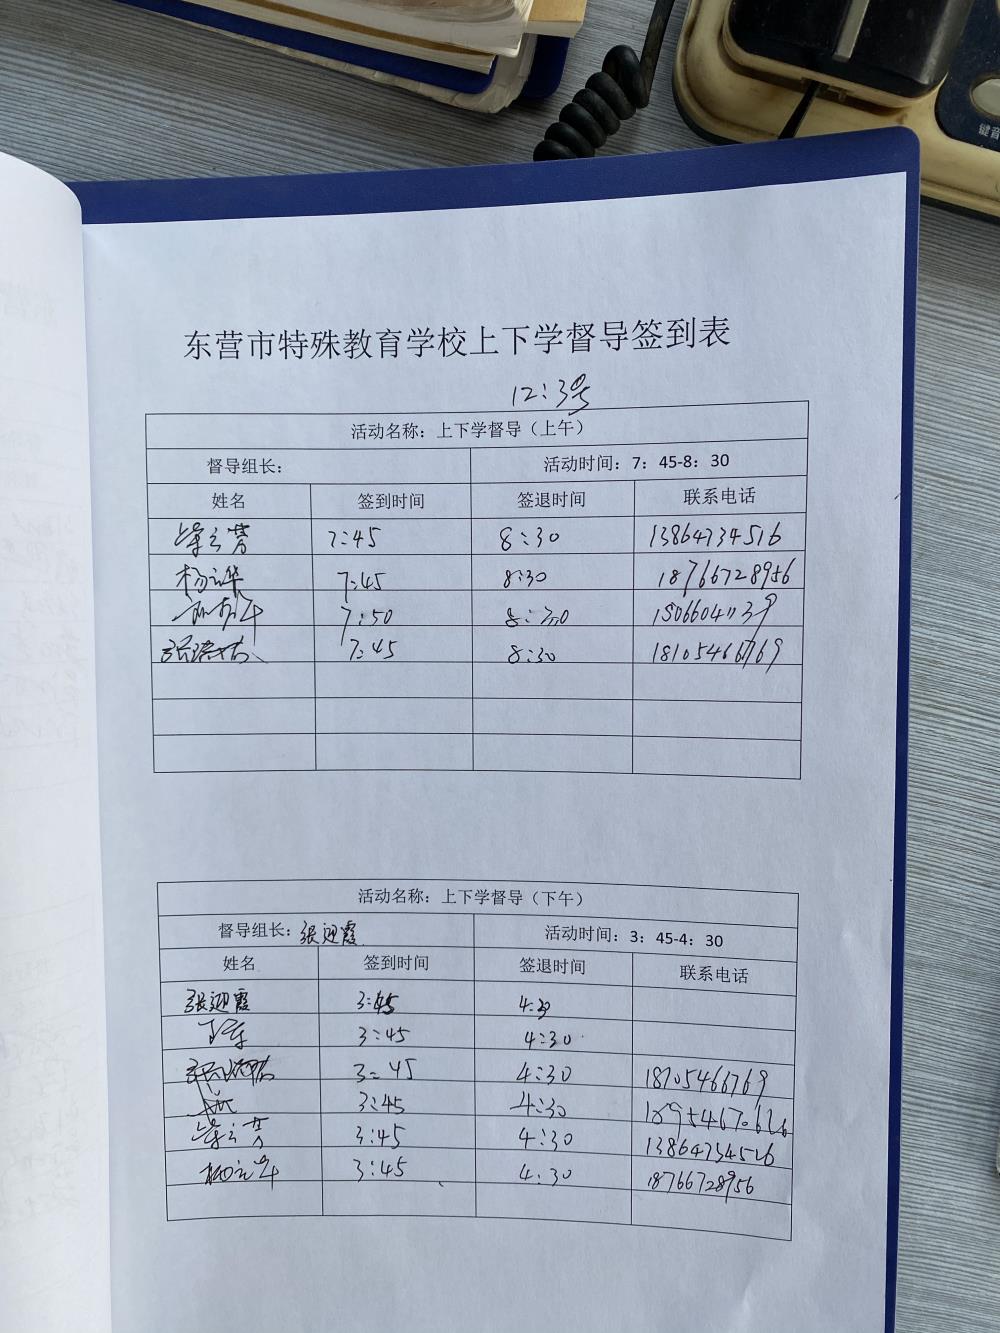 键音
东营市特殊教育学校上下学督导签到表
12:3号
活动名称：上下学督导（上午）
督导组长： 活动时间：7：45-8：30
姓名 签到时间 签退时间 联系电话
7:45 8:30 13864734516
杨 7:45 8:30 18766728956
7:50 8:30
张 7:45 8:30 18105466769
活动名称：上下学督导（下午）
督导组长：张迎霞 活动时间：3：45-4：30
姓名 签到时间 签退时间 联系电话
张迎霞 3:45 4:30
3:45 4:30
张 3:45 4:30 18105466769
3:45 4:30
3:45 4:30 13864734516
杨 3:45 4:30 18766728956